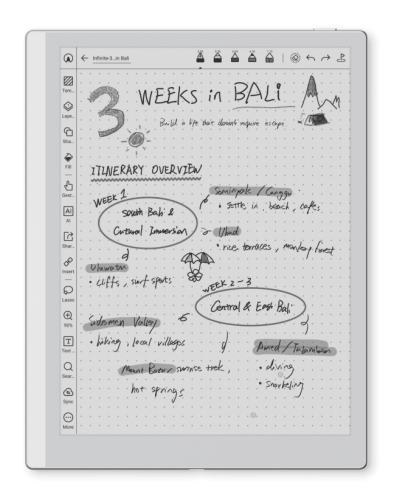 Infinite-S...in Bali
Temp...
Laye...
Sha...
Fill
Gest...
AI
AI
Shar...
Insert
Lasso
50%
T
Text...
Sear...
Sync
More
3 WEEKS in BALI
Build a life that doesn't require escape.
ITINERARY OVERVIEW
WEEK 1
South Bali &
Cultural Immersion
Seminyak / Canggu
• settle in, beach, cafes
Ubud
• rice terraces, monkey forest
Uluwatu
• cliffs, surf spots
WEEK 2-3
Central & East Bali
Sidemen Valley
• hiking, local villages
Mount Batur sunrise trek,
hot springs
Amed /
• diving
• snorkeling